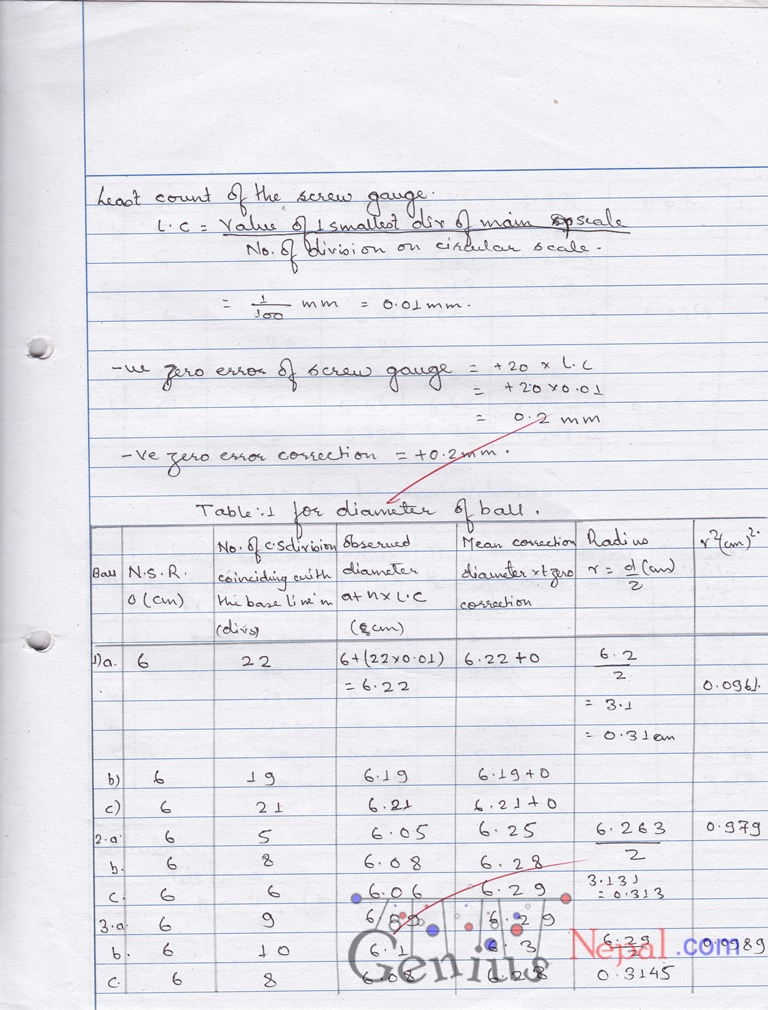 Least count of the screw gauge.
L.C = Value of 1 smallest div of main scale
No. of division on circular scale.
= 1/100 mm = 0.01 mm.
-ve zero error of screw gauge = +20 x L.C
= +20 x 0.01
= 0.2 mm
-ve zero error correction = +0.2 mm.
Table:1 for diameter of ball.
Ball | N.S.R. 0 (cm) | No. of C.S division coinciding with the base line in (divs) | Observed diameter a+n x L.C (cm) | Mean correction diameter zero correction | Radius r = d/2 (cm) | r²(cm)².
1)a. 6 22 6+(22x0.01) 6.22+0 6.2/2
= 6.22 0.0961.
= 3.1
= 0.31 cm
b) 6 19 6.19 6.19+0
c) 6 21 6.21 6.21+0
2.a 6 5 6.05 6.25 6.263/2 0.979
b. 6 8 6.08 6.28
c. 6 6 6.06 6.29 3.131
= 0.313
3.a 6 9 6.29
b. 6 10 6.1 6.3 6.29/2
c. 6 8 6.08 6.28 0.3145
Genius Nepal.com